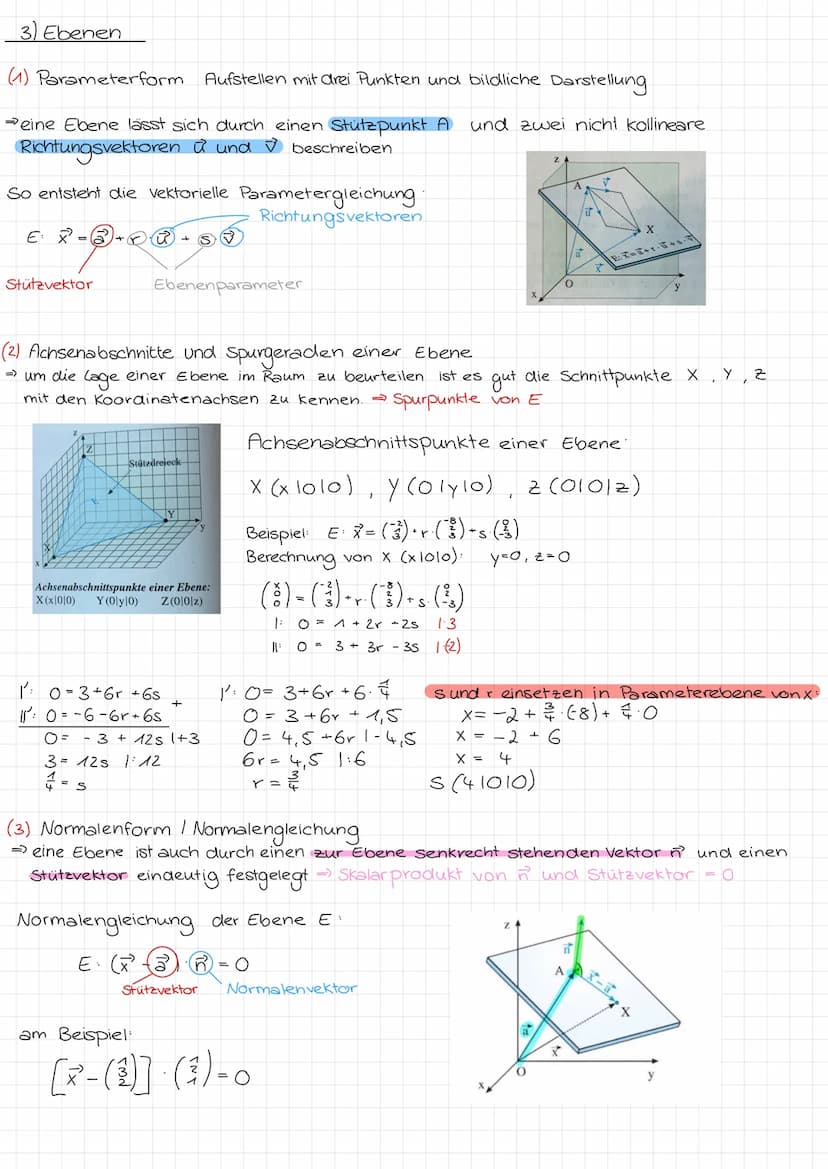 3) Ebenen
(1) Parameterform Aufstellen mit drei Punkten und bildliche Darstellung
⇒ eine Ebene lässt sich durch einen Stützpunkt A und zwei nicht kollineare
Richtungsvektoren u⃗ und v⃗ beschreiben
So entsteht die vektorielle Parametergleichung:
Richtungsvektoren
E: x⃗ = a⃗ + r · u⃗ + s · v⃗
Stützvektor Ebenenparameter
z
A
v⃗
u⃗
X
a⃗
E: x⃗ = a⃗ + r · u⃗ + s · v⃗
x⃗
O
x
y
(2) Achsenabschnitte und Spurgeraden einer Ebene
⇒ um die Lage einer Ebene im Raum zu beurteilen ist es gut die Schnittpunkte X , Y , Z
mit den Koordinatenachsen zu kennen. ⇒ Spurpunkte von E
z
Z
Stützdreieck
E
Y
y
X
x
Achsenabschnittspunkte einer Ebene:
X(x|0|0) Y(0|y|0) Z(0|0|z)
Achsenabschnittspunkte einer Ebene:
X (x|0|0) , Y (0|y|0) , Z (0|0|z)
Beispiel: E: x⃗ = (-2 1 3) + r · (-8 2 3) + s · (0 2 -3)
Berechnung von X (x|0|0): y=0, z=0
(x 0 0) = (-2 1 3) + r · (-8 2 3) + s · (0 2 -3)
I: 0 = 1 + 2r + 2s | · 3
II: 0 = 3 + 3r - 3s | · (2)
I': 0 = 3 + 6r + 6s
II': 0 = -6 - 6r + 6s +
0 = - 3 + 12s | + 3
3 = 12s | : 12
1/4 = s
I': 0 = 3 + 6r + 6 · 1/4
0 = 3 + 6r + 1,5
0 = 4,5 + 6r | - 4,5
6r = 4,5 | : 6
r = 3/4
s und r einsetzen in Parameterebene von x:
x = -2 + 3/4 · (-8) + 1/4 · 0
x = -2 + 6
x = 4
S (4|0|0)
(3) Normalenform / Normalengleichung
⇒ eine Ebene ist auch durch einen zur Ebene senkrecht stehenden Vektor n⃗ und einen
Stützvektor eindeutig festgelegt ⇒ Skalarprodukt von n⃗ und Stützvektor = 0
Normalengleichung der Ebene E:
E: (x⃗ - a⃗) · n⃗ = 0
Stützvektor Normalenvektor
am Beispiel:
[x⃗ - (1 3 2)] · (1 2 1) = 0
z
n⃗
A
x⃗ - a⃗
X
a⃗
x⃗
O
x
y